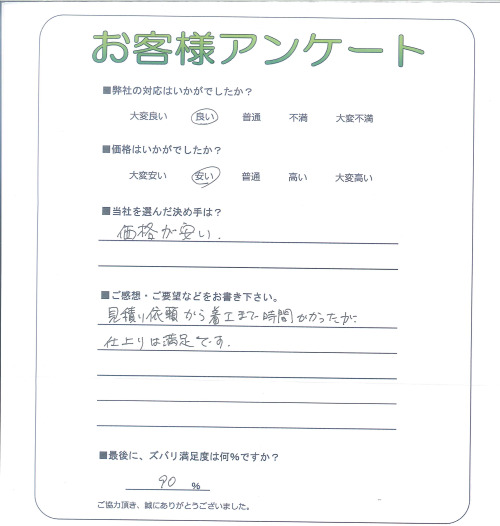 お客様アンケート
■弊社の対応はいかがでしたか？
大変良い 良い 普通 不満 大変不満
■価格はいかがでしたか？
大変安い 安い 普通 高い 大変高い
■当社を選んだ決め手は？
価格が安い.
■ご感想・ご要望などをお書き下さい。
見積り依頼から着工まで時間がかかったが
仕上りは満足です.
■最後に、ズバリ満足度は何%ですか？
90 %
ご協力頂き、誠にありがとうございました。